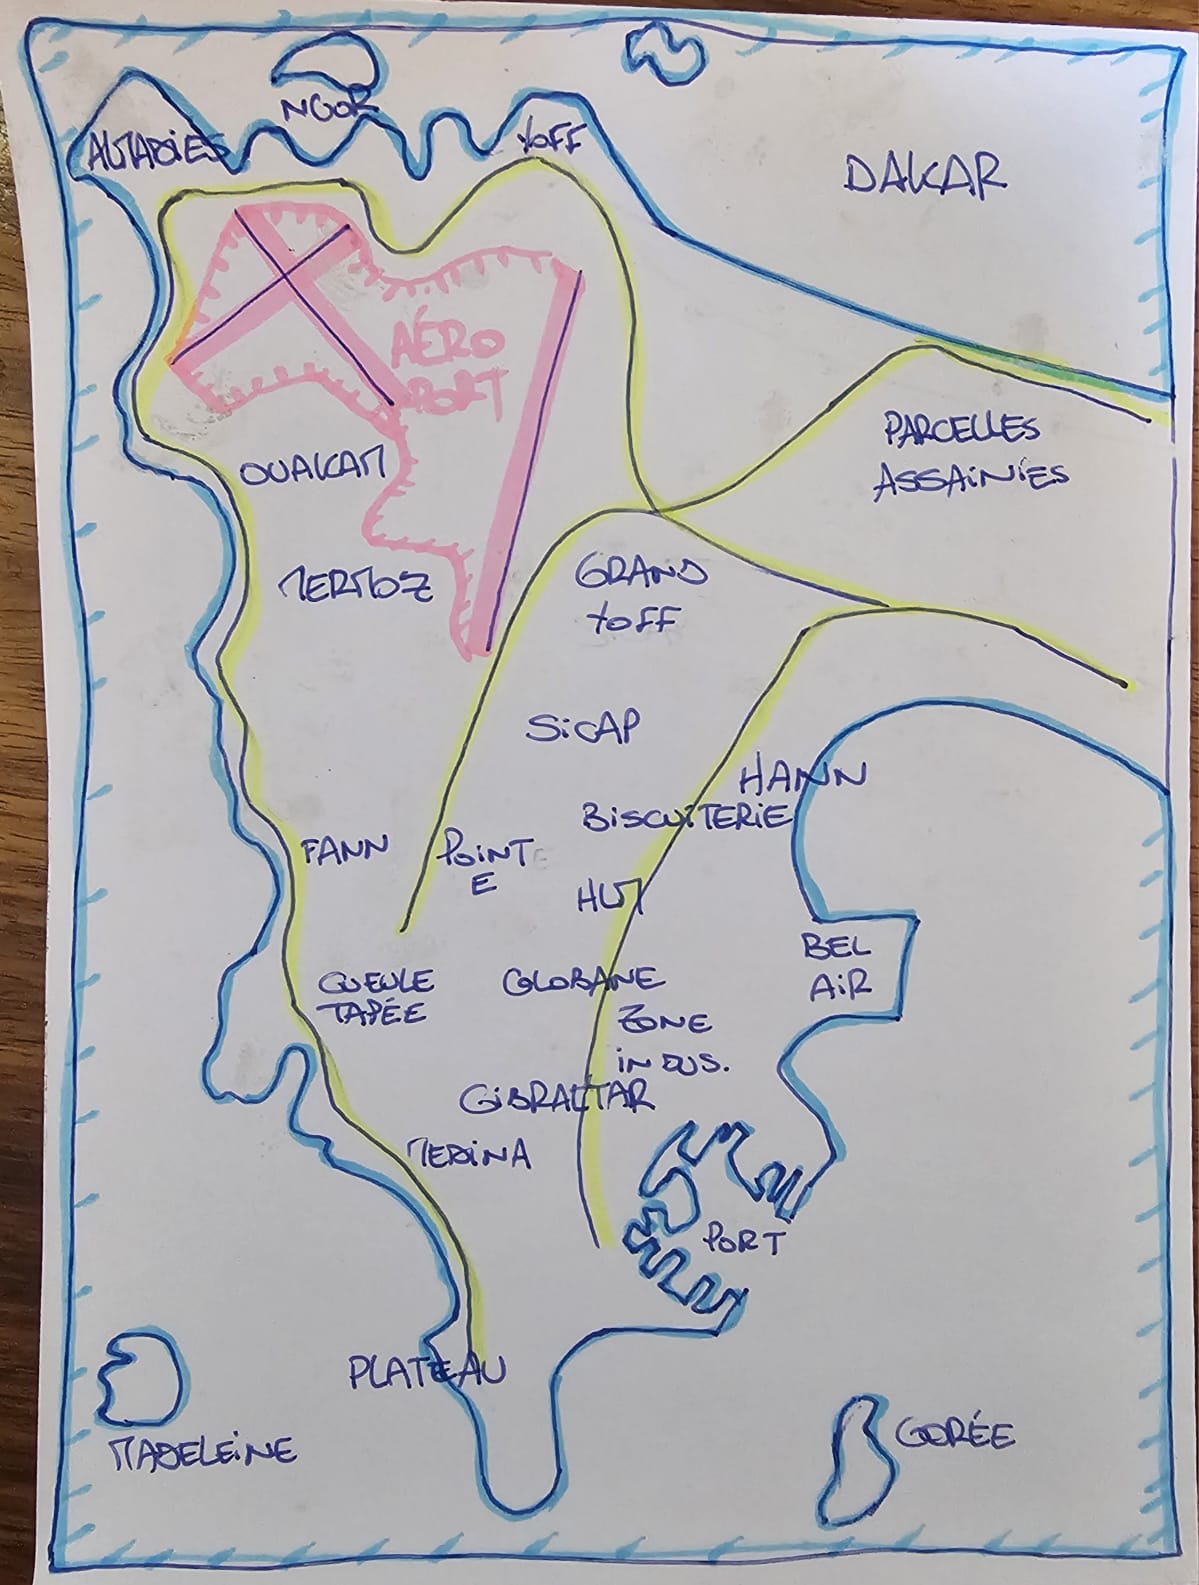 NGOR
ALMADIES
YOFF
DAKAR
AÉRO
PORT
PARCELLES
ASSAINIES
OUAKAM
MERMOZ
GRAND
YOFF
SICAP
HANN
BISCUITERIE
FANN
POINT
E
HLM
BEL
AIR
GUEULE
TAPÉE
COLOBANE
ZONE
INDUS.
GIBRALTAR
MEDINA
PORT
PLATEAU
MADELEINE
GORÉE